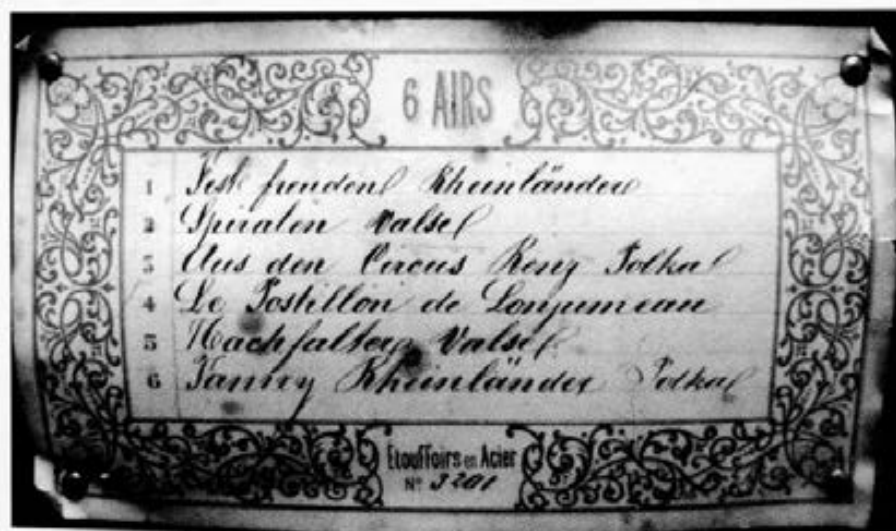 6 AIRS
1 Fest freuden Rheinländer
2 Spiralen Valse
3 Aus den Circus Renz Polka
4 Le Postillon de Lonjumeau
5 Nachfalter Valse
6 Fanny Rheinländer Polka
Etouffoirs en Acier
Nº 3201